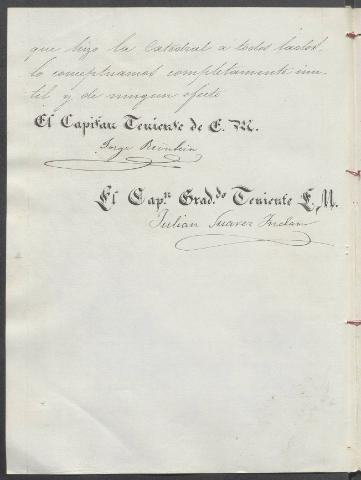 que hizo la Catedral á todos lados,
lo conceptuamos completamente inu-
til y de ningun efecto
El Capitan Teniente de E. M.
Jorge Reinlein
El Cap.n Grad.do Teniente E. M.
Julian Suarez Inclan